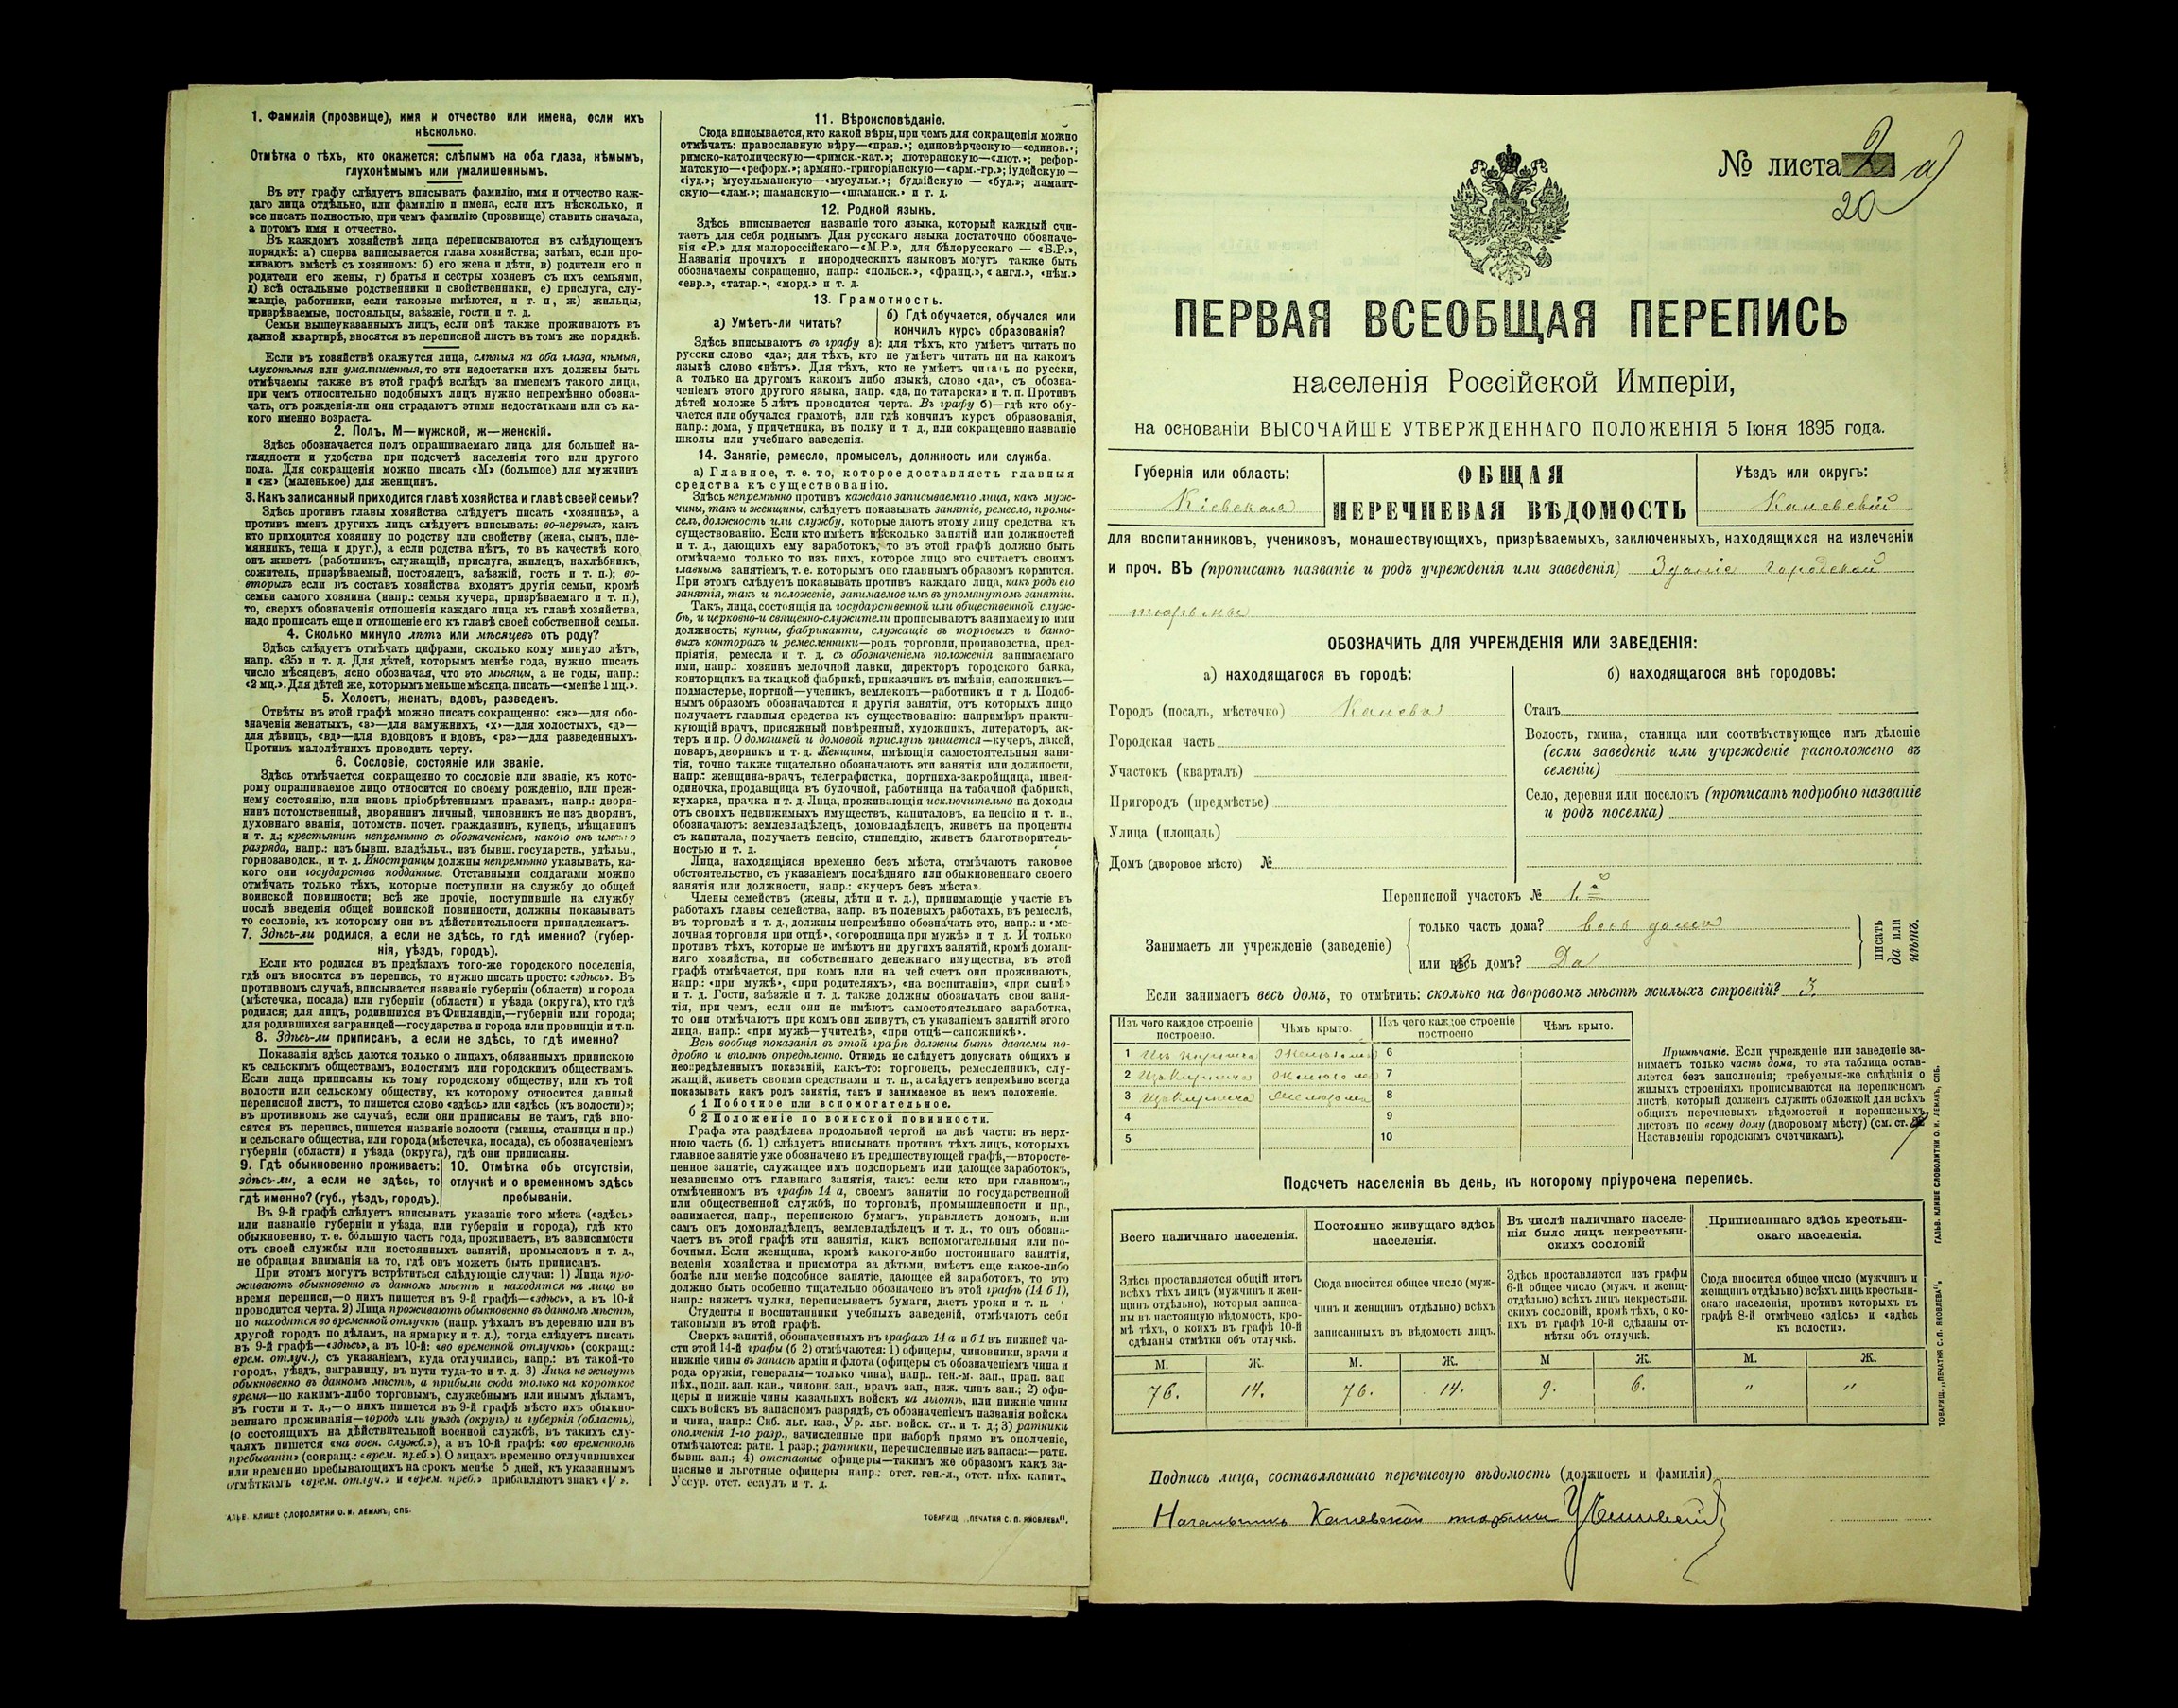 1. Фамилія (прозвище), имя и отчество или имена, если ихъ
нѣсколько.
Отмѣтка о тѣхъ, кто окажется: слѣпымъ на оба глаза, нѣмымъ,
глухонѣмымъ или умалишеннымъ.
Въ эту графу слѣдуетъ вписывать фамилію, имя и отчество каж-
даго лица отдѣльно, или фамилію и имена, если ихъ нѣсколько, и
все писать полностью, при чемъ фамилію (прозвище) ставить сначала,
а потомъ имя и отчество.
Въ каждомъ хозяйствѣ лица переписываются въ слѣдующемъ
порядкѣ: а) сперва записывается глава хозяйства; затѣмъ, если про-
живаютъ вмѣстѣ съ хозяиномъ: б) его жена и дѣти, в) родители его и
родители его жены, г) братья и сестры хозяевъ съ ихъ семьями,
д) всѣ остальные родственники и свойственники, е) прислуга, слу-
жащіе, работники, если таковые имѣются, и т. п, ж) жильцы,
призрѣваемые, постояльцы, заѣзжіе, гости и т. д.
Семьи вышеуказанныхъ лицъ, если онѣ также проживаютъ въ
данной квартирѣ, вносятся въ переписной листъ въ томъ же порядкѣ.
Если въ хозяйствѣ окажутся лица, слѣпыя на оба глаза, нѣмыя,
глухонѣмыя или умалишенныя, то эти недостатки ихъ должны быть
отмѣчаемы также въ этой графѣ вслѣдъ за именемъ такого лица,
при чемъ относительно подобныхъ лицъ нужно непремѣнно обозна-
чать, отъ рожденія-ли они страдаютъ этими недостатками или съ ка-
кого именно возраста.
2. Полъ, М—мужской, ж—женскій.
Здѣсь обозначается полъ опрашиваемаго лица для большей на-
глядности и удобства при подсчетѣ населенія того или другого
пола. Для сокращенія можно писать «М» (большое) для мужчинъ
и «ж» (маленькое) для женщинъ.
3. Какъ записанный приходится главѣ хозяйства и главѣ своей семьи?
Здѣсь противъ главы хозяйства слѣдуетъ писать «хозяинъ», а
противъ именъ другихъ лицъ слѣдуетъ вписывать: во-первыхъ, какъ
кто приходится хозяину по родству или свойству (жена, сынъ, пле-
мянникъ, теща и друг.), а если родства нѣтъ, то въ качествѣ кого
онъ живетъ (работникъ, служащій, прислуга, жилецъ, нахлѣбникъ,
сожитель, призрѣваемый, постоялецъ, заѣзжій, гость и т. п.); во-
вторыхъ если въ составъ хозяйства входятъ другія семьи, кромѣ
семьи самого хозяина (напр.: семья кучера, призрѣваемаго и т. п.),
то, сверхъ обозначенія отношенія каждаго лица къ главѣ хозяйства,
надо прописать еще и отношеніе его къ главѣ своей собственной семьи.
4. Сколько минуло лѣтъ или мѣсяцевъ отъ роду?
Здѣсь слѣдуетъ отмѣчать цифрами, сколько кому минуло лѣтъ,
напр. «35» и т. д. Для дѣтей, которымъ менѣе года, нужно писать
число мѣсяцевъ, ясно обозначая, что это мѣсяцы, а не годы, напр.:
«2 мц.». Для дѣтей же, которымъ меньше мѣсяца, писать—«менѣе 1 мц.».
5. Холостъ, женатъ, вдовъ, разведенъ.
Отвѣты въ этой графѣ можно писать сокращенно: «ж»—для обо-
значенія женатыхъ, «з»—для замужнихъ, «х»—для холостыхъ, «д»—
для дѣвицъ, «вд»—для вдовцовъ и вдовъ, «рз»—для разведенныхъ.
Противъ малолѣтнихъ проводить черту.
6. Сословіе, состояніе или званіе.
Здѣсь отмѣчается сокращенно то сословіе или званіе, къ кото-
рому опрашиваемое лицо относится по своему рожденію, или преж-
нему состоянію, или вновь пріобрѣтеннымъ правамъ, напр.: дворя-
нинъ потомственный, дворянинъ личный, чиновникъ не изъ дворянъ,
духовнаго званія, потомств. почет. гражданинъ, купецъ, мѣщанинъ
и т. д.; крестьянинъ непремѣнно съ обозначеніемъ, какого онъ имено
разряда, напр.: изъ бывш. владѣльч., изъ бывш. государств., удѣльн.,
горнозаводск., и т. д. Иностранцы должны непремѣнно указывать, ка-
кого они государства подданные. Отставными солдатами можно
отмѣчать только тѣхъ, которые поступили на службу до общей
воинской повинности; всѣ же прочіе, поступившіе на службу
послѣ введенія общей воинской повинности, должны показывать
то сословіе, къ которому они въ дѣйствительности принадлежатъ.
7. Здѣсь-ли родился, а если не здѣсь, то гдѣ именно? (губер-
нія, уѣздъ, городъ).
Если кто родился въ предѣлахъ того-же городского поселенія,
гдѣ онъ вносится въ перепись, то нужно писать просто: «здѣсь». Въ
противномъ случаѣ, вписывается названіе губерніи (области) и города
(мѣстечка, посада) или губерніи (области) и уѣзда (округа), кто гдѣ
родился; для лицъ, родившихся въ Финляндіи,—губерніи или города;
для родившихся заграницей—государства и города или провинціи и т.п.
8. Здѣсь-ли приписанъ, а если не здѣсь, то гдѣ именно?
Показанія здѣсь даются только о лицахъ, обязанныхъ припискою
къ сельскимъ обществамъ, волостямъ или городскимъ обществамъ.
Если лица приписаны къ тому городскому обществу, или къ той
волости или сельскому обществу, къ которому относится данный
переписной листъ, то пишется слово «здѣсь» или «здѣсь (къ волости)»;
въ противномъ же случаѣ, если они приписаны не тамъ, гдѣ вно-
сятся въ перепись, пишется названіе волости (гмины, станицы и пр.)
и сельскаго общества, или города (мѣстечка, посада), съ обозначеніемъ
губерніи (области) и уѣзда (округа), гдѣ они приписаны.
9. Гдѣ обыкновенно проживаетъ:
здѣсь-ли, а если не здѣсь, то
гдѣ именно? (губ., уѣздъ, городъ).
10. Отмѣтка объ отсутствіи,
отлучкѣ и о временномъ здѣсь
пребываніи.
Въ 9-й графѣ слѣдуетъ вписывать указаніе того мѣста («здѣсь»
или названіе губерніи и уѣзда, или губерніи и города), гдѣ кто
обыкновенно, т. е. бо́льшую часть года, проживаетъ, въ зависимости
отъ своей службы или постоянныхъ занятій, промысловъ и т. д.,
не обращая вниманія на то, гдѣ онъ можетъ быть приписанъ.
При этомъ могутъ встрѣтиться слѣдующіе случаи: 1) Лица про-
живаютъ обыкновенно въ данномъ мѣстѣ и находятся на лицо во
время переписи,—о нихъ пишется въ 9-й графѣ—«здѣсь», а въ 10-й
проводится черта. 2) Лица проживаютъ обыкновенно въ данномъ мѣстѣ,
но находятся во временной отлучкѣ (напр. уѣхалъ въ деревню или въ
другой городъ по дѣламъ, на ярмарку и т. д.), тогда слѣдуетъ писать
въ 9-й графѣ—«здѣсь», а въ 10-й: «во временной отлучкѣ» (сокращ.:
врем. отлуч.), съ указаніемъ, куда отлучились, напр.: въ такой-то
городъ, уѣздъ, заграницу, въ пути туда-то и т. д. 3) Лица не живутъ
обыкновенно въ данномъ мѣстѣ, а прибыли сюда только на короткое
время—по какимъ-либо торговымъ, служебнымъ или инымъ дѣламъ,
въ гости и т. д.,—о нихъ пишется въ 9-й графѣ мѣсто ихъ обыкно-
веннаго проживанія—городъ или уѣздъ (округъ) и губернія (область),
(о состоящихъ на дѣйствительной военной службѣ, въ такихъ слу-
чаяхъ пишется «на воен. служб.»), а въ 10-й графѣ: «во временномъ
пребываніи» (сокращ.: «врем. преб.»). О лицахъ временно отлучившихся
или временно пребывающихъ на срокъ менѣе 5 дней, къ указаннымъ
отмѣткамъ «врем. отлуч.» и «врем. преб.» прибавляютъ знакъ «V».
АЛЬВ. КЛИШЕ СЛОВОЛИТНИ О. И. ЛЕМАНЪ, СПБ.
11. Вѣроисповѣданіе.
Сюда вписывается, кто какой вѣры, при чемъ для сокращенія можно
отмѣчать: православную вѣру—«прав.»; единовѣрческую—«единов.»;
римско-католическую—«римск.-кат.»; лютеранскую—«лют.»; рефор-
матскую—«реформ.»; армяно.-григоріанскую—«арм.-гр.»; іудейскую—
«іуд.»; мусульманскую—«мусульм.»; буддійскую — «буд.»; ламаит-
скую—«лам.»; шаманскую—«шаманск.» и т. д.
12. Родной языкъ.
Здѣсь вписывается названіе того языка, который каждый счи-
таетъ для себя роднымъ. Для русскаго языка достаточно обозначе-
нія «Р.» для малороссійскаго—«М.Р.», для бѣлорусскаго — «Б.Р.»,
Названія прочихъ и инородческихъ языковъ могутъ также быть
обозначаемы сокращенно, напр.: «польск.», «франц.», «англ.», «нѣм.»
«евр.», «татар.», «морд.» и т. д.
13. Грамотность.
а) Умѣетъ-ли читать?
б) Гдѣ обучается, обучался или
кончилъ курсъ образованія?
Здѣсь вписываютъ въ графу а): для тѣхъ, кто умѣетъ читать по
русски слово «да»; для тѣхъ, кто не умѣетъ читать ни на какомъ
языкѣ слово «нѣтъ». Для тѣхъ, кто не умѣетъ читать по русски,
а только на другомъ какомъ либо языкѣ, слово «да», съ обозна-
ченіемъ этого другого языка, напр. «да, по татарски» и т. п. Противъ
дѣтей моложе 5 лѣтъ проводится черта. Въ графу б)—гдѣ кто обу-
чается или обучался грамотѣ, или гдѣ кончилъ курсъ образованія,
напр.: дома, у причетника, въ полку и т д., или сокращенно названіе
школы или учебнаго заведенія.
14. Занятіе, ремесло, промыселъ, должность или служба.
а) Главное, т. е. то, которое доставляетъ главныя
средства къ существованію.
Здѣсь непремѣнно противъ каждаго записываемаго лица, какъ муж-
чины, такъ и женщины, слѣдуетъ показывать занятіе, ремесло, промы-
селъ, должность или службу, которые даютъ этому лицу средства къ
существованію. Если кто имѣетъ нѣсколько занятій или должностей
и т. д., дающихъ ему заработокъ, то въ этой графѣ должно быть
отмѣчаемо только то изъ нихъ, которое лицо это считаетъ своимъ
главнымъ занятіемъ, т. е. которымъ оно главнымъ образомъ кормится.
При этомъ слѣдуетъ показывать противъ каждаго лица, какъ родъ его
занятія, такъ и положеніе, занимаемое имъ въ упомянутомъ занятіи.
Такъ, лица, состоящія на государственной или общественной служ-
бѣ, и церковно-и священно-служители прописываютъ занимаемую ими
должность; купцы, фабриканты, служащіе въ торговыхъ и банко-
выхъ конторахъ и ремесленники—родъ торговли, производства, пред-
пріятія, ремесла и т. д. съ обозначеніемъ положенія занимаемаго
ими, напр.: хозяинъ мелочной лавки, директоръ городского банка,
конторщикъ на ткацкой фабрикѣ, приказчикъ въ имѣніи, сапожникъ—
подмастерье, портной—ученикъ, землекопъ—работникъ и т д. Подоб-
нымъ образомъ обозначаются и другія занятія, отъ которыхъ лицо
получаетъ главныя средства къ существованію: напримѣръ практи-
кующій врачъ, присяжный повѣренный, художникъ, литераторъ, ак-
теръ и пр. О домашней и домовой прислугѣ пишется—кучеръ, лакей,
поваръ, дворникъ и т. д. Женщины, имѣющія самостоятельныя заня-
тія, точно также тщательно обозначаютъ эти занятія или должности,
напр.: женщина-врачъ, телеграфистка, портниха-закройщица, швея-
одиночка, продавщица въ булочной, работница на табачной фабрикѣ,
кухарка, прачка и т. д. Лица, проживающія исключительно на доходы
отъ своихъ недвижимыхъ имуществъ, капиталовъ, на пенсію и т. п.,
обозначаютъ: землевладѣлецъ, домовладѣлецъ, живетъ на проценты
съ капитала, получаетъ пенсію, стипендію, живетъ благотворитель-
ностью и т. д.
Лица, находящіяся временно безъ мѣста, отмѣчаютъ таковое
обстоятельство, съ указаніемъ послѣдняго или обыкновеннаго своего
занятія или должности, напр.: «кучеръ безъ мѣста».
Члены семействъ (жены, дѣти и т. д.), принимающіе участіе въ
работахъ главы семейства, напр. въ полевыхъ работахъ, въ ремеслѣ,
въ торговлѣ и т. д., должны непремѣнно обозначать это, напр.: и «ме-
лочная торговля при отцѣ», «огородница при мужѣ» и т д. И только
противъ тѣхъ, которые не имѣютъ ни другихъ занятій, кромѣ домаш-
няго хозяйства, ни собственнаго денежнаго имущества, въ этой
графѣ отмѣчается, при комъ или на чей счетъ они проживаютъ,
напр.: «при мужѣ», «при родителяхъ», «на воспитаніи», «при сынѣ»
и т. д. Гости, заѣзжіе и т. д. также должны обозначать свои заня-
тія, при чемъ, если они не имѣютъ самостоятельнаго заработка,
то они отмѣчаютъ при комъ они живутъ, съ указаніемъ занятій этого
лица, напр.: «при мужѣ—учителѣ», «при отцѣ—сапожникѣ».
Всѣ вообще показанія въ этой графѣ должны быть даваемы по-
дробно и вполнѣ опредѣленно. Отнюдь не слѣдуетъ допускать общихъ и
неопредѣленныхъ показаній, какъ-то: торговецъ, ремесленникъ, слу-
жащій, живетъ своими средствами и т. п., а слѣдуетъ непремѣнно всегда
показывать какъ родъ занятія, такъ и занимаемое въ немъ положеніе.
б 1 Побочное или вспомогательное.
2 Положеніе по воинской повинности.
Графа эта раздѣлена продольной чертой на двѣ части: въ верх-
нюю часть (б. 1) слѣдуетъ вписывать противъ тѣхъ лицъ, которыхъ
главное занятіе уже обозначено въ предшествующей графѣ,—второсте-
пенное занятіе, служащее имъ подспорьемъ или дающее заработокъ,
независимо отъ главнаго занятія, такъ: если кто при главномъ,
отмѣченномъ въ графѣ 14 а, своемъ занятіи по государственной
или общественной службѣ, по торговлѣ, промышленности и пр.,
занимается, напр., перепискою бумагъ, управляетъ домомъ, или
самъ онъ домовладѣлецъ, землевладѣлецъ и т. д., то онъ обозна-
чаетъ въ этой графѣ эти занятія, какъ вспомогательныя или по-
бочныя. Если женщина, кромѣ какого-либо постояннаго занятія,
веденія хозяйства и присмотра за дѣтьми, имѣетъ еще какое-либо
болѣе или менѣе подсобное занятіе, дающее ей заработокъ, то это
должно быть особенно тщательно обозначено въ этой графѣ (14 б 1),
напр.: вяжетъ чулки, переписываетъ бумаги, даетъ уроки и т. п.
Студенты и воспитанники учебныхъ заведеній, отмѣчаютъ себя
таковыми въ этой графѣ.
Сверхъ занятій, обозначенныхъ въ графахъ 14 а и б 1 въ нижней ча-
сти этой 14-й графы (б 2) отмѣчаются: 1) офицеры, чиновники, врачи и
нижніе чины въ запасѣ арміи и флота (офицеры съ обозначеніемъ чина и
рода оружія, генералы—только чина), напр.. ген.-м. зап., прап. зап
пѣх., подп. зап. кав., чиновн. зап., врачъ зап., ниж. чинъ зап.; 2) офи-
церы и нижніе чины казачьихъ войскъ на льготѣ, или нижніе чины
сихъ войскъ въ запасномъ разрядѣ, съ обозначеніемъ названія войска
и чина, напр.: Сиб. льг. каз., Ур. льг. войск. ст.. и т. д.; 3) ратники
ополченія 1-го разр., зачисленные при наборѣ прямо въ ополченіе,
отмѣчаются: ратн. 1 разр.; ратники, перечисленные изъ запаса:—ратн.
бывш. зап.; 4) отставные офицеры—такимъ же образомъ какъ за-
пасные и льготные офицеры напр.: отст. ген.-л., отст. пѣх. капит.,
Уссур. отст. есаулъ и т. д.
ТОВАРИЩ. „ПЕЧАТНЯ С. П. ЯКОВЛЕВА“.
№ листа 2 а)
20
ПЕРВАЯ ВСЕОБЩАЯ ПЕРЕПИСЬ
населенія Россійской Имперіи,
на основаніи ВЫСОЧАЙШЕ УТВЕРЖДЕННАГО ПОЛОЖЕНІЯ 5 Іюня 1895 года.
Губернія или область:
Кіевская
ОБЩАЯ
ПЕРЕЧНЕВАЯ ВѢДОМОСТЬ
Уѣздъ или округъ:
Каневскій
для воспитанниковъ, учениковъ, монашествующихъ, призрѣваемыхъ, заключенныхъ, находящихся на излеченіи
и проч. ВЪ (прописать названіе и родъ учрежденія или заведенія) Зданіе городской
тюрьмы
ОБОЗНАЧИТЬ ДЛЯ УЧРЕЖДЕНІЯ ИЛИ ЗАВЕДЕНІЯ:
а) находящагося въ городѣ:
Городъ (посадъ, мѣстечко) Каневъ
Городская часть
Участокъ (кварталъ)
Пригородъ (предмѣстье)
Улица (площадь)
Домъ (дворовое мѣсто) №
б) находящагося внѣ городовъ:
Станъ
Волость, гмина, станица или соотвѣтствующее имъ дѣленіе
(если заведеніе или учрежденіе расположено въ
селеніи)
Село, деревня или поселокъ (прописать подробно названіе
и родъ поселка)
Переписной участокъ № 1.й
Занимаетъ ли учрежденіе (заведеніе)
только часть дома? весь домъ
или весь домъ? Да
писать
да или
нѣтъ.
Если занимаетъ весь домъ, то отмѣтить: сколько на дворовомъ мѣстѣ жилыхъ строеній? 3.
Изъ чего каждое строеніе построено. Чѣмъ крыто. Изъ чего каждое строеніе построено Чѣмъ крыто.
1 Изъ кирпича Желѣзомъ 6
2 Изъ Кирпича Желѣзомъ 7
3 Изъ Кирпича Желѣзомъ 8
4 9
5 10
Примѣчаніе. Если учрежденіе или заведеніе за-
нимаетъ только часть дома, то эта таблица остав-
ляется безъ заполненія; требуемыя-же свѣдѣнія о
жилыхъ строеніяхъ прописываются на переписномъ
листѣ, который долженъ служить обложкой для всѣхъ
общихъ перечневыхъ вѣдомостей и переписныхъ
листовъ по всему дому (дворовому мѣсту) (см. ст. 7
Наставленія городскимъ счетчикамъ).
Подсчетъ населенія въ день, къ которому пріурочена перепись.
Всего наличнаго населенія.
Здѣсь проставляется общій итогъ
всѣхъ тѣхъ лицъ (мужчинъ и жен-
щинъ отдѣльно), которыя записа-
ны въ настоящую вѣдомость, кро-
мѣ тѣхъ, о коихъ въ графѣ 10-й
сдѣланы отмѣтки объ отлучкѣ.
Постоянно живущаго здѣсь
населенія.
Сюда вносится общее число (муж-
чинъ и женщинъ отдѣльно) всѣхъ
записанныхъ въ вѣдомость лицъ.
Въ числѣ наличнаго населе-
нія было лицъ некрестьян-
скихъ сословій
Здѣсь проставляется изъ графы
6-й общее число (мужч. и женщ.
отдѣльно) всѣхъ лицъ некрестьян-
скихъ сословій, кромѣ тѣхъ, о ко-
ихъ въ графѣ 10-й сдѣланы от-
мѣтки объ отлучкѣ.
Приписаннаго здѣсь крестьян-
скаго населенія.
Сюда вносится общее число (мужчинъ и
женщинъ отдѣльно) всѣхъ лицъ крестьян-
скаго населенія, противъ которыхъ въ
графѣ 8-й отмѣчено «здѣсь» и «здѣсь
къ волости».
М. Ж. М. Ж. М Ж. М. Ж.
76. 14. 76. 14. 9. 6. " "
Подпись лица, составлявшаго перечневую вѣдомость (должность и фамилія)
Начальникъ Каневской тюрьмы
ГАЛЬВ. КЛИШЕ СЛОВОЛИТНИ О. И. ЛЕМАНЪ, СПБ.
ТОВАРИЩ. „ПЕЧАТНЯ С. П. ЯКОВЛЕВА“.